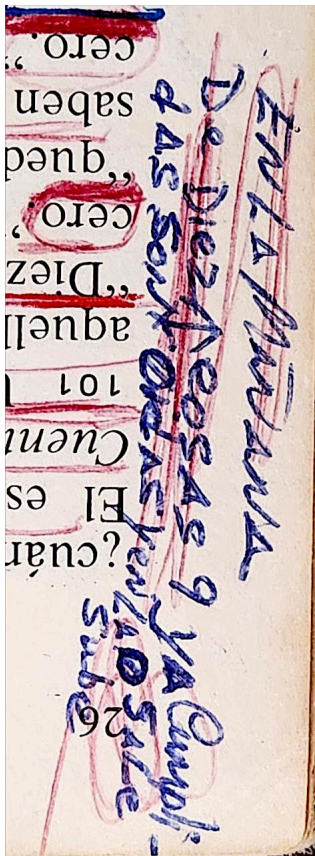 92
¿cuán
El es
Cuen
101
aquell
“Diez
cero.
“qued
saben
cero.”
EN LA MAÑANA
De Diez COSAS 9 YA Cumpli-
das son y en la O SALE
Sube